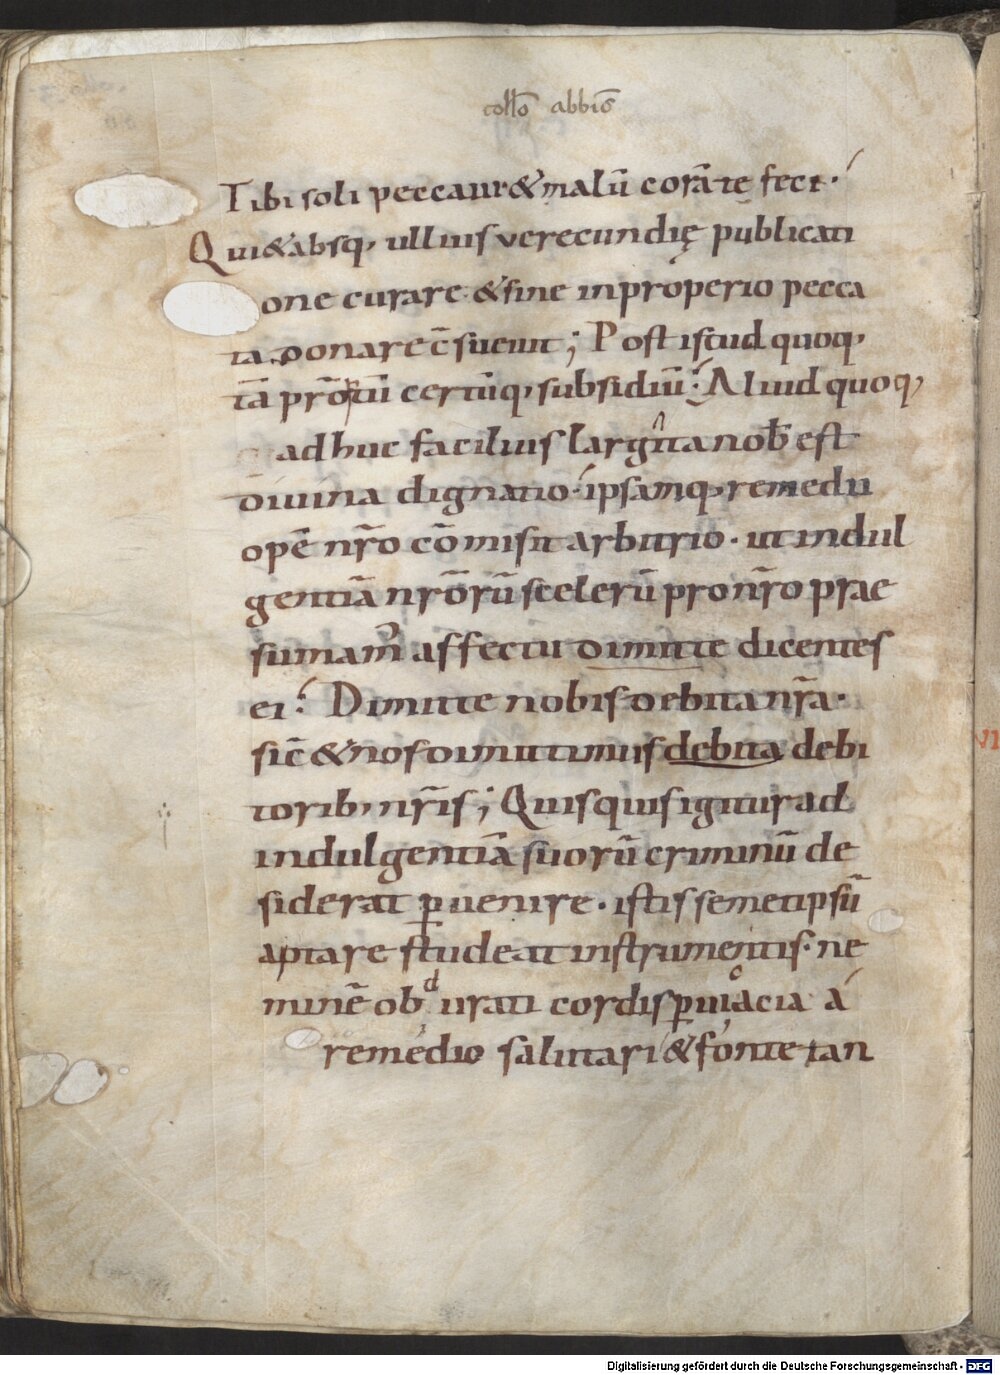 coll̄o abbīs
Tibi soli peccaui & malū corā te feci·
Qui & absq, ullius verecundię publicati
one curare & sine inproperio pecca
ta donare c̄sueuit; Post istud quoq,
tā prōtū certūq, subsidiū: Aliud quoq,
adhuc facilius largita nob̄ est
diuina dignatio· ipsamq, remedii
opē nr̄o cōmisit arbitrio· ut indul
gentiā nr̄ōrū scelerū pro nr̄o prae
sumam̄ affectu dimitte dicentes
ei: Dimitte nobis debita nr̄a·
sic̄ & nos dimittimus debita debi
torib, nr̄is; Quisquis igitur ad
indulgentiā suorū criminū de
siderat ꝑuenire· istis semetipsū
aptare studeat instrumentis· ne
minē obdurati cordis ꝑuicacia á
remedio salutari & fonte tan
VI
Digitalisierung gefördert durch die Deutsche Forschungsgemeinschaft - DFG